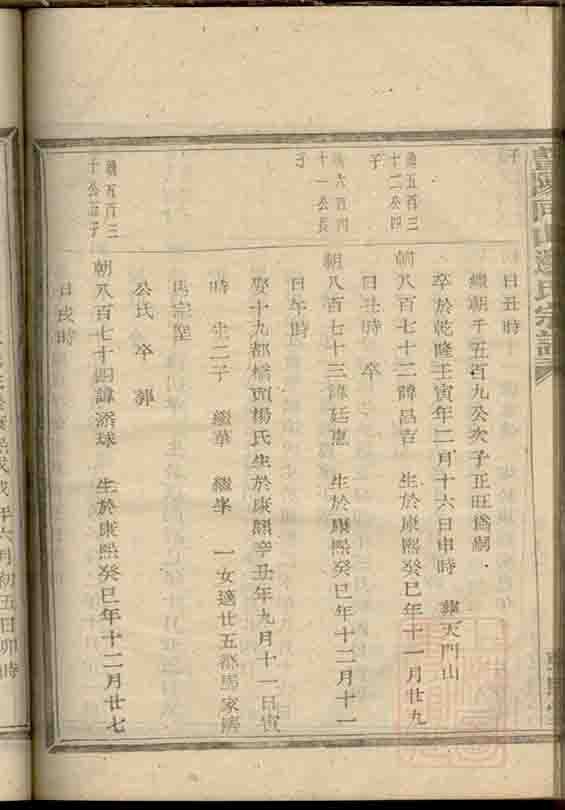 子
日丑時
繼朝千五百九公次子正旺爲嗣
卒於乾隆壬寅年二月十六日申時 葬天門山
五百三
十二公四
子
朝八百七十二諱昌吉 生於康熙癸巳年十一月廿九
日丑時 卒
六百四
十一公長
子
朝八百七十三諱廷惠 生於康熙癸巳年十二月十一
日午時
娶十九都橋頭楊氏生於康熙辛丑年九月十一日寅
時 生二子 繼華 繼峯 一女適廿五都馬家塘
馬宗
公氏 卒 葬
五百三
十公五子
朝八百七十四諱添球 生於康熙癸巳年十二月廿七
日戌時
年六月初五日卯時